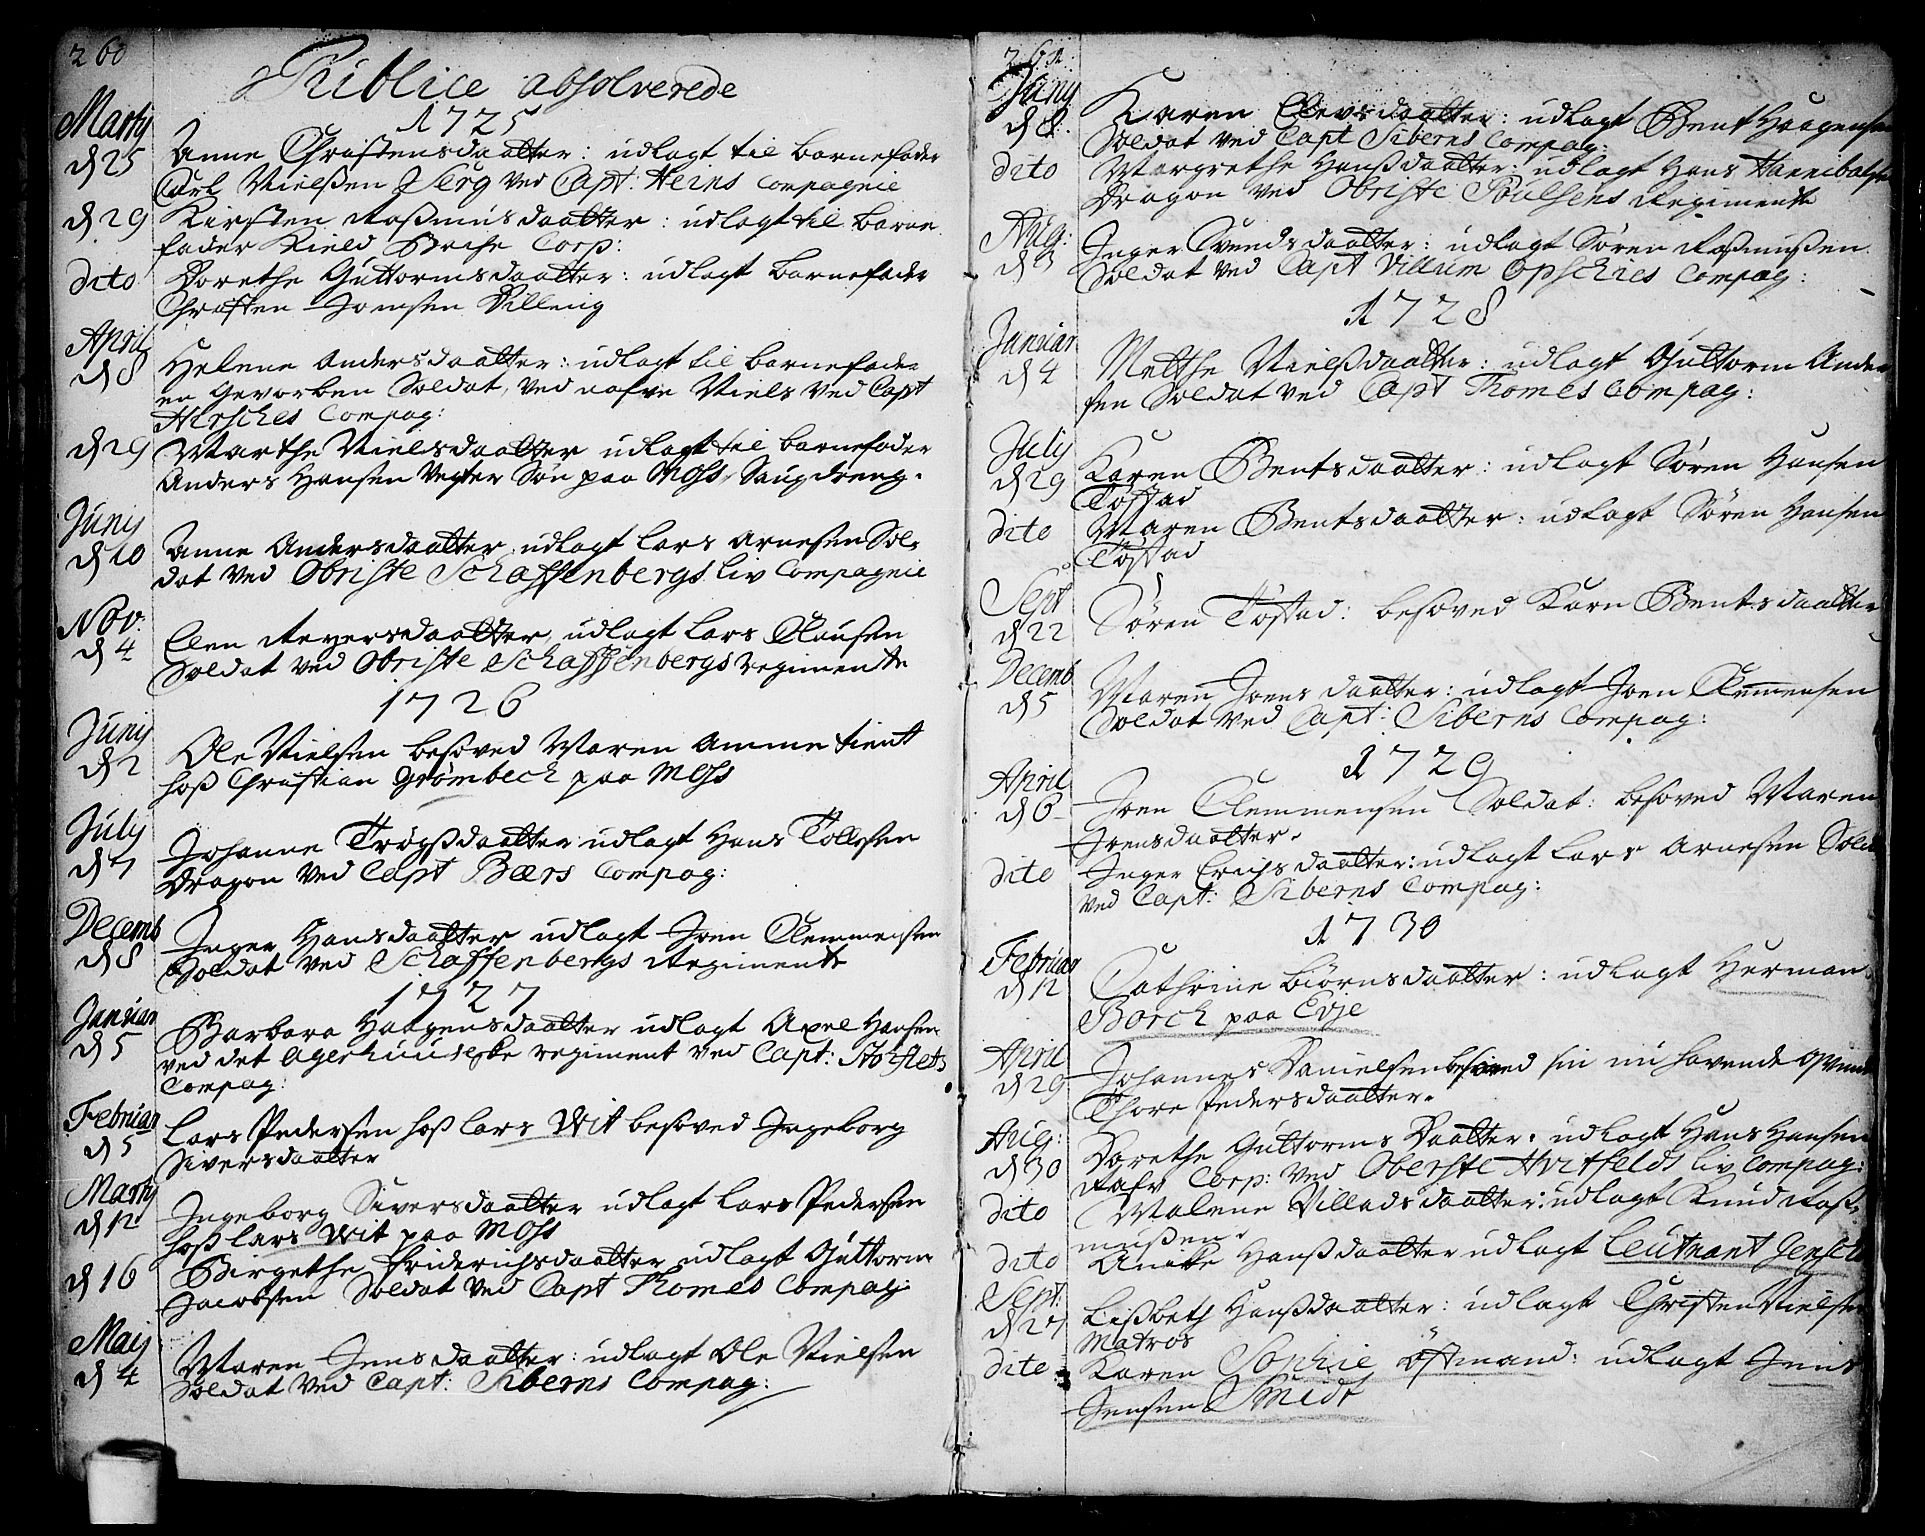 260
Publice absolverede
1725
Martij
d 25 Anne Christensdaatter: udlagt til barnefader
Carl Nielßen Berg ved Capt: Heins Compagnie
d. 29 Kirsten Raßmusdaatter: udlagt til barne
fader Kield Corp:
dito Dorethe Guttormsdaatter: udlagt barnefader
Christen Jonsen Dilleng
April
d 8 Helene Andersdaatter: udlagt til barnefader
en Gevorben Soldat, ved nafn Niels ved Capt
Hirsches Compag:
d 29 Marthe Nielsdaatter udlagt til barnefader
Anders Hansen Søn paa Moss,
Junij
d 10 Anne Andersdaatter, udlagt Lars Arnesen Sol-
dat ved Obriste Schaffenbergs liv Compagnie
Nov:
d 4 Elen Reyersdaatter, udlagt Lars Clausen
Soldat ved Obriste Schaffenbergs regimente
1726
Junij
d 2 Ole Nielsen besoved Maren Amme tient
hoß Christian Grömbech paa Moss
July
d 7 Johanne Trögßdaatter udlagt Hans Tollefsen
Dragon ved Capt Bærs Compag:
Decemb
d 8 Inger Hansdaatter udlagt Joen Clemmensen
Soldat ved Schaffenbergs Regimente
1727
Januar
d 5 Barbara Haagensdaatter udlagt Axel Hansen
ved det Agerhuuseske regiment ved Capt: Storflets
Compag:
Februar
d 5 Lars Pedersen hoß Lars Wit besoved Ingeborg
Siversdaatter
Martij
d 12 Ingeborg Siversdaatter udlagt Lars Pedersen
hoß Lars Wit paa Moss
d 16 Birgethe Friderichsdaatter udlagt Guttorm
Jacobsen Soldat ved Capt Thomes Compag:
Maij
d 4 Maren Jensdaatter: udlagt Ole Nielsen
Soldat ved Capt: Siberns Compag:
Juny
d 8. Karen Elevsdaatter: udlagt Bent Haagensen
Soldat ved Capt Siberns Compag:
dito Margrethe Hanßdaatter: udlagt Hans Hannibalsen
Dragon ved Obriste Poulsens Regimente
Aug:
d 3 Inger Svendsdaatter: udlagt Søren Raßmußen
Soldat ved Capt Villum Opschies Compag:
1728
Januar
d 4 Metthe Nielßdaatter: udlagt Guttorm Ander
sen Soldat ved Capt Thomes Compag:
July
d 29 Karen Bentsdaatter: udlagt Søren Hansen
Töstad
dito Maren Bentsdaatter: udlagt Søren Hansen
Töstad
Sept
d 22 Søren Töstad: besoved Karn Bentsdaatter
Decemb
d 5 Maren Joensdaatter: udlagt Joen Clemmensen
Soldat ved Capt: Siberns Compag:
1729
April
d 6 Joen Clemmensen Soldat: besoved Maren
Joensdaatter.
dito Inger Erichsdaatter: udlagt Lars Arnesen Soldat
ved Capt: Siberns Compag:
1730
Februar
d 12 Cathrine Biörnsdaatter: udlagt Herman
Borch paa Evje
April
d 29 Johannes Danielsen besoved sin nu havende Qvinde
Thore Pedersdaatter.
Aug:
d 30 Dorethe Guttorms Daatter. udlagt Hans Hansen
Corp: ved Oberste Hvitfelds liv Compag:
dito Malene Villadsdaatter: udlagt Knud Raß-
mußen.
dito Anike Hanßdaatter udlagt Leutnant
Sept:
d 27 Lißbeth Hanßdaatter: udlagt Christen Nielsen
Matros
dito Karen Sophie Östmand: udlagt Jens
Jensen Smidt